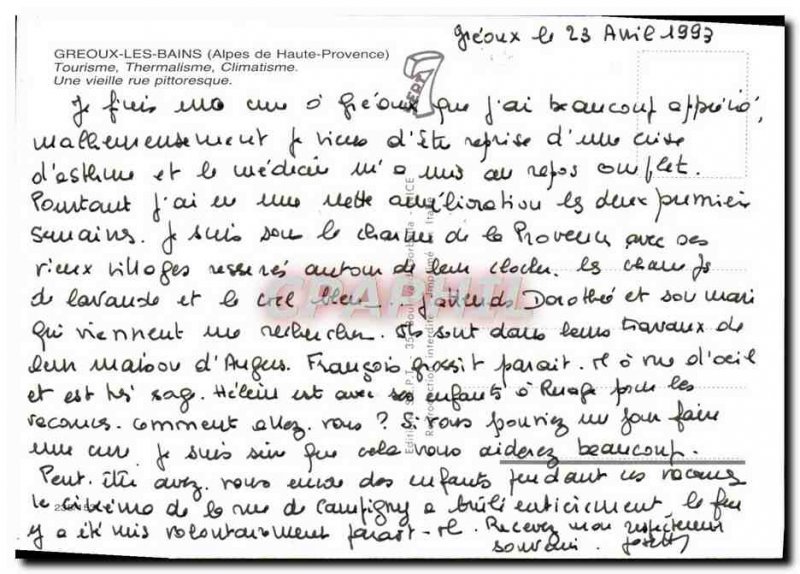 Gréoux le 23 Avril 1993
GREOUX-LES-BAINS (Alpes de Haute-Provence)
Tourisme, Thermalisme, Climatisme.
Une vieille rue pittoresque.
Je finis ma cure à Gréoux que j'ai beaucoup apprécié,
malheureusement je viens d'être reprise d'une crise
d'asthme et le médecin m'a mis au repos complet.
Pourtant j'ai eu une nette amélioration les deux premier
semaines. Je suis sous le charme de la Provence avec ses
vieux villages resserrés autour de leur clocher. les champs
de lavande et le ciel bleu... j'attends Dorothé et son mari
qui viennent me rechercher. Ils sont dans leurs travaux de
leur maison d'Angers. François grossit parait-il à vue d'oeil
et est très sage. Hélène est avec ses enfants à pour les
vacances. Comment allez-vous ? Si vous pouviez un jour faire
une cure je suis sûr que cela vous aiderez beaucoup.
Peut-être avez-vous encore des enfants pendant ces vacances
le cinéma de la rue de Campigny a brûlé entièrement, le feu
y a été mis volontairement parait-il. Recevez mon respectueux
souvenir. Josette
CPAPHIL